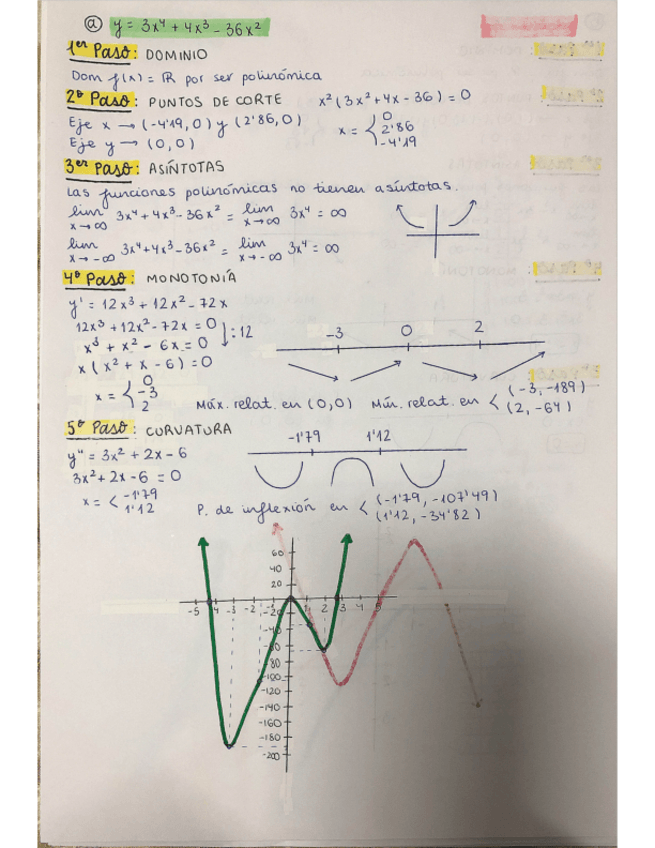 ⓐ y = 3x⁴ + 4x³ - 36x²
1er Paso: DOMINIO
Dom f(x) = ℝ por ser polinómica
2º Paso: PUNTOS DE CORTE x²(3x² + 4x - 36) = 0
Eje x → (-4'19, 0) y (2'86, 0) x = < 0
2'86
-4'19
Eje y → (0,0)
3er Paso: ASÍNTOTAS
Las funciones polinómicas no tienen asíntotas.
lim x→∞ 3x⁴ + 4x³ - 36x² = lim x→∞ 3x⁴ = ∞
lim x→-∞ 3x⁴ + 4x³ - 36x² = lim x→-∞ 3x⁴ = ∞
4º Paso: MONOTONÍA
y' = 12x³ + 12x² - 72x
12x³ + 12x² - 72x = 0 :12
x³ + x² - 6x = 0
x (x² + x - 6) = 0
x = < 0
-3
2
-3 0 2
Máx. relat. en (0,0) Mín. relat. en < (-3, -189)
(2, -64)
5º Paso: CURVATURA
y'' = 3x² + 2x - 6
3x² + 2x - 6 = 0
x = < -1'79
1'12
-1'79 1'12
P. de inflexión en < (-1'79, -107'49)
(1'12, -34'82)
60
40
20
-5 -4 -3 -2 -1 1 2 3 4
-20
-40
-60
-80
-100
-120
-140
-160
-180
-200